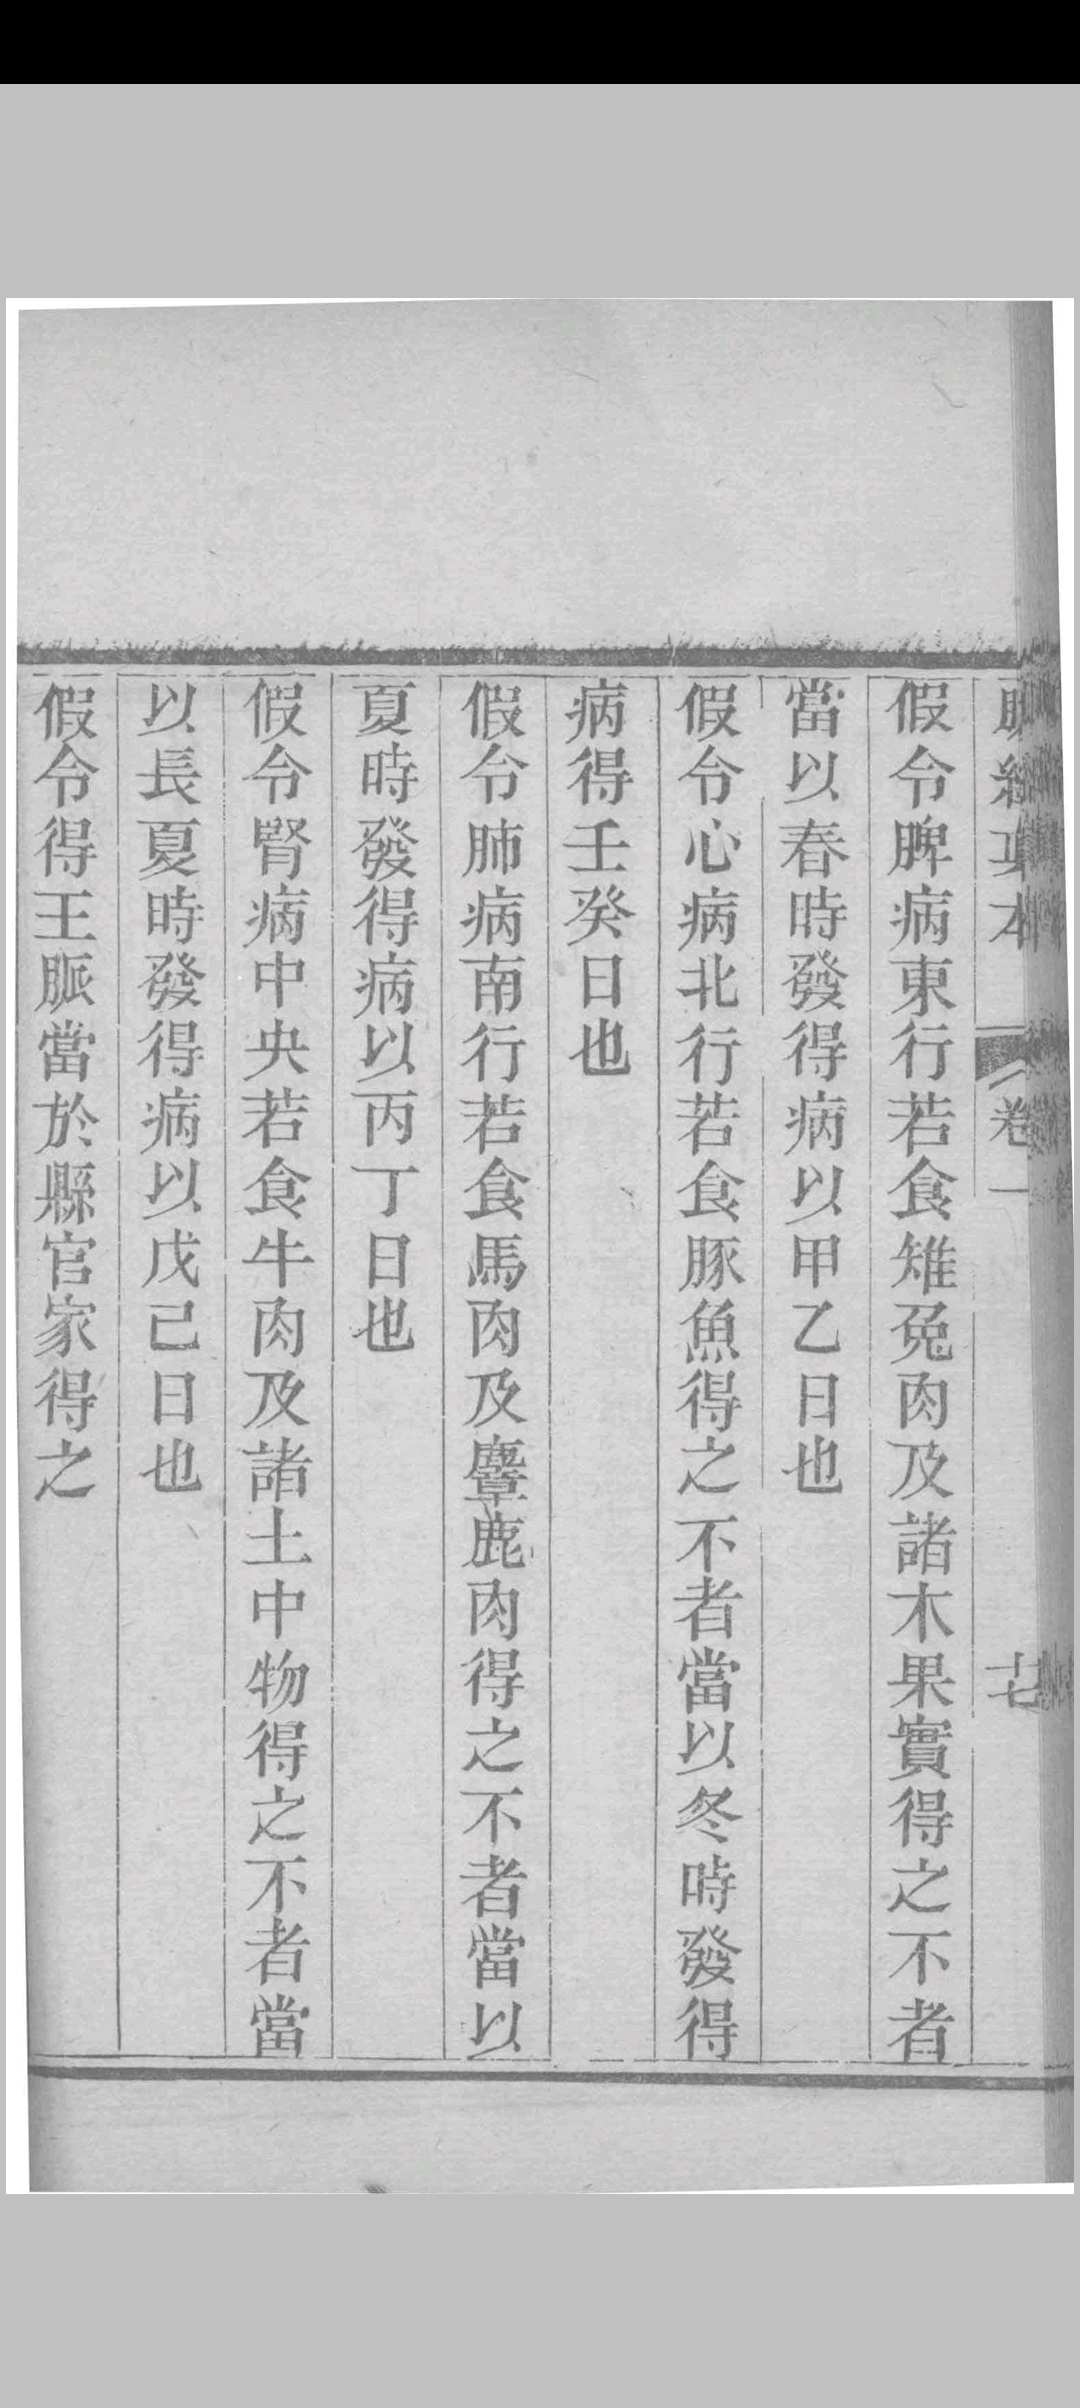 脈經真本 卷一 十七
假令脾病東行若食雉兔肉及諸木果實得之不者
當以春時發得病以甲乙日也
假令心病北行若食豚魚得之不者當以冬時發得
病得壬癸日也
假令肺病南行若食馬肉及麞鹿肉得之不者當以
夏時發得病以丙丁日也
假令腎病中央若食牛肉及諸土中物得之不者當
以長夏時發得病以戊己日也
假令得王脈當於縣官家得之